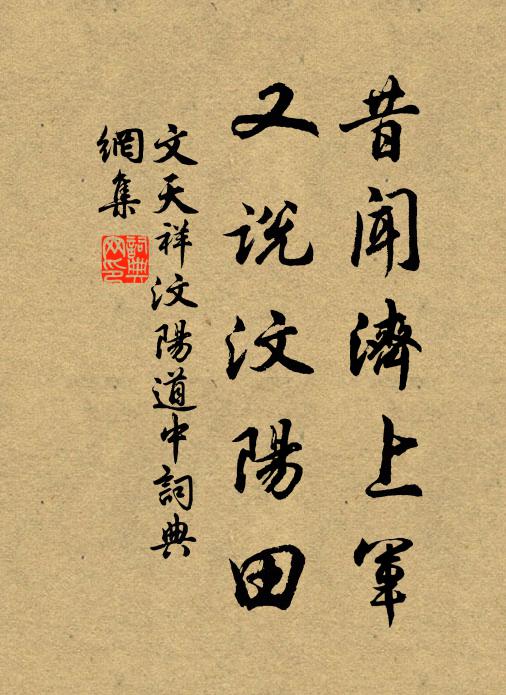 昔聞濟上軍
又說汶陽田
文天祥汶陽道中詞典
網集
詞典
网印